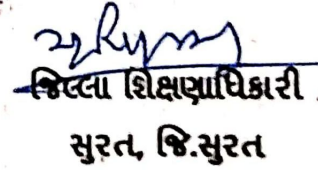 જિલ્લા શિક્ષણાધિકારી
સુરત, જિ.સુરત